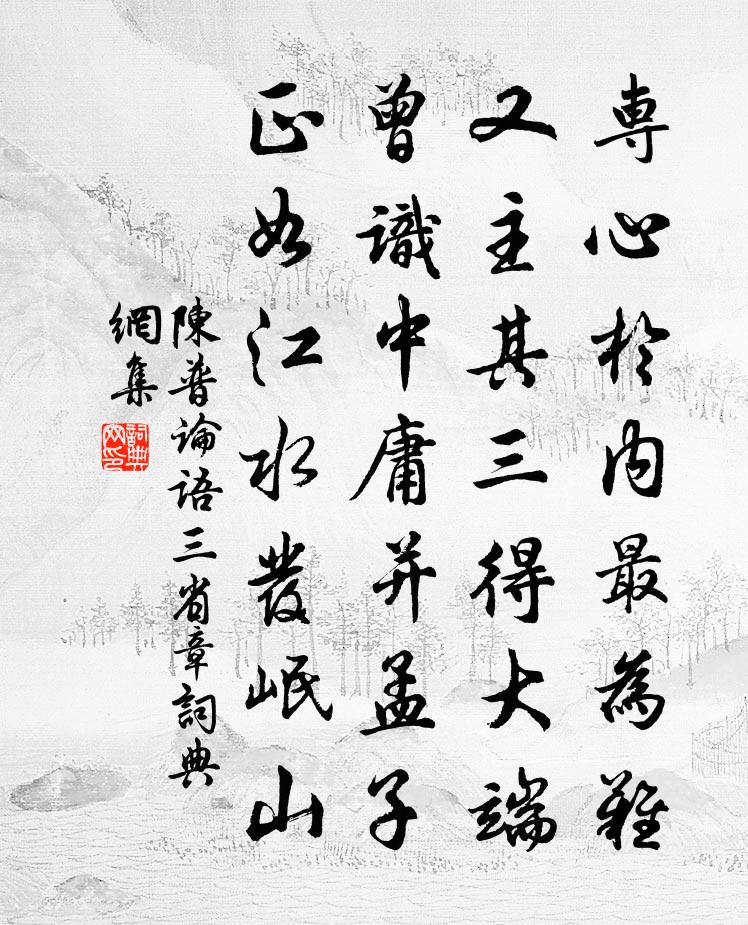 專心於内最為難
又主其三得大端
曾識中庸并孟子
正如江水發岷山
陳普論語三省章詞典
網集
詞典
网印